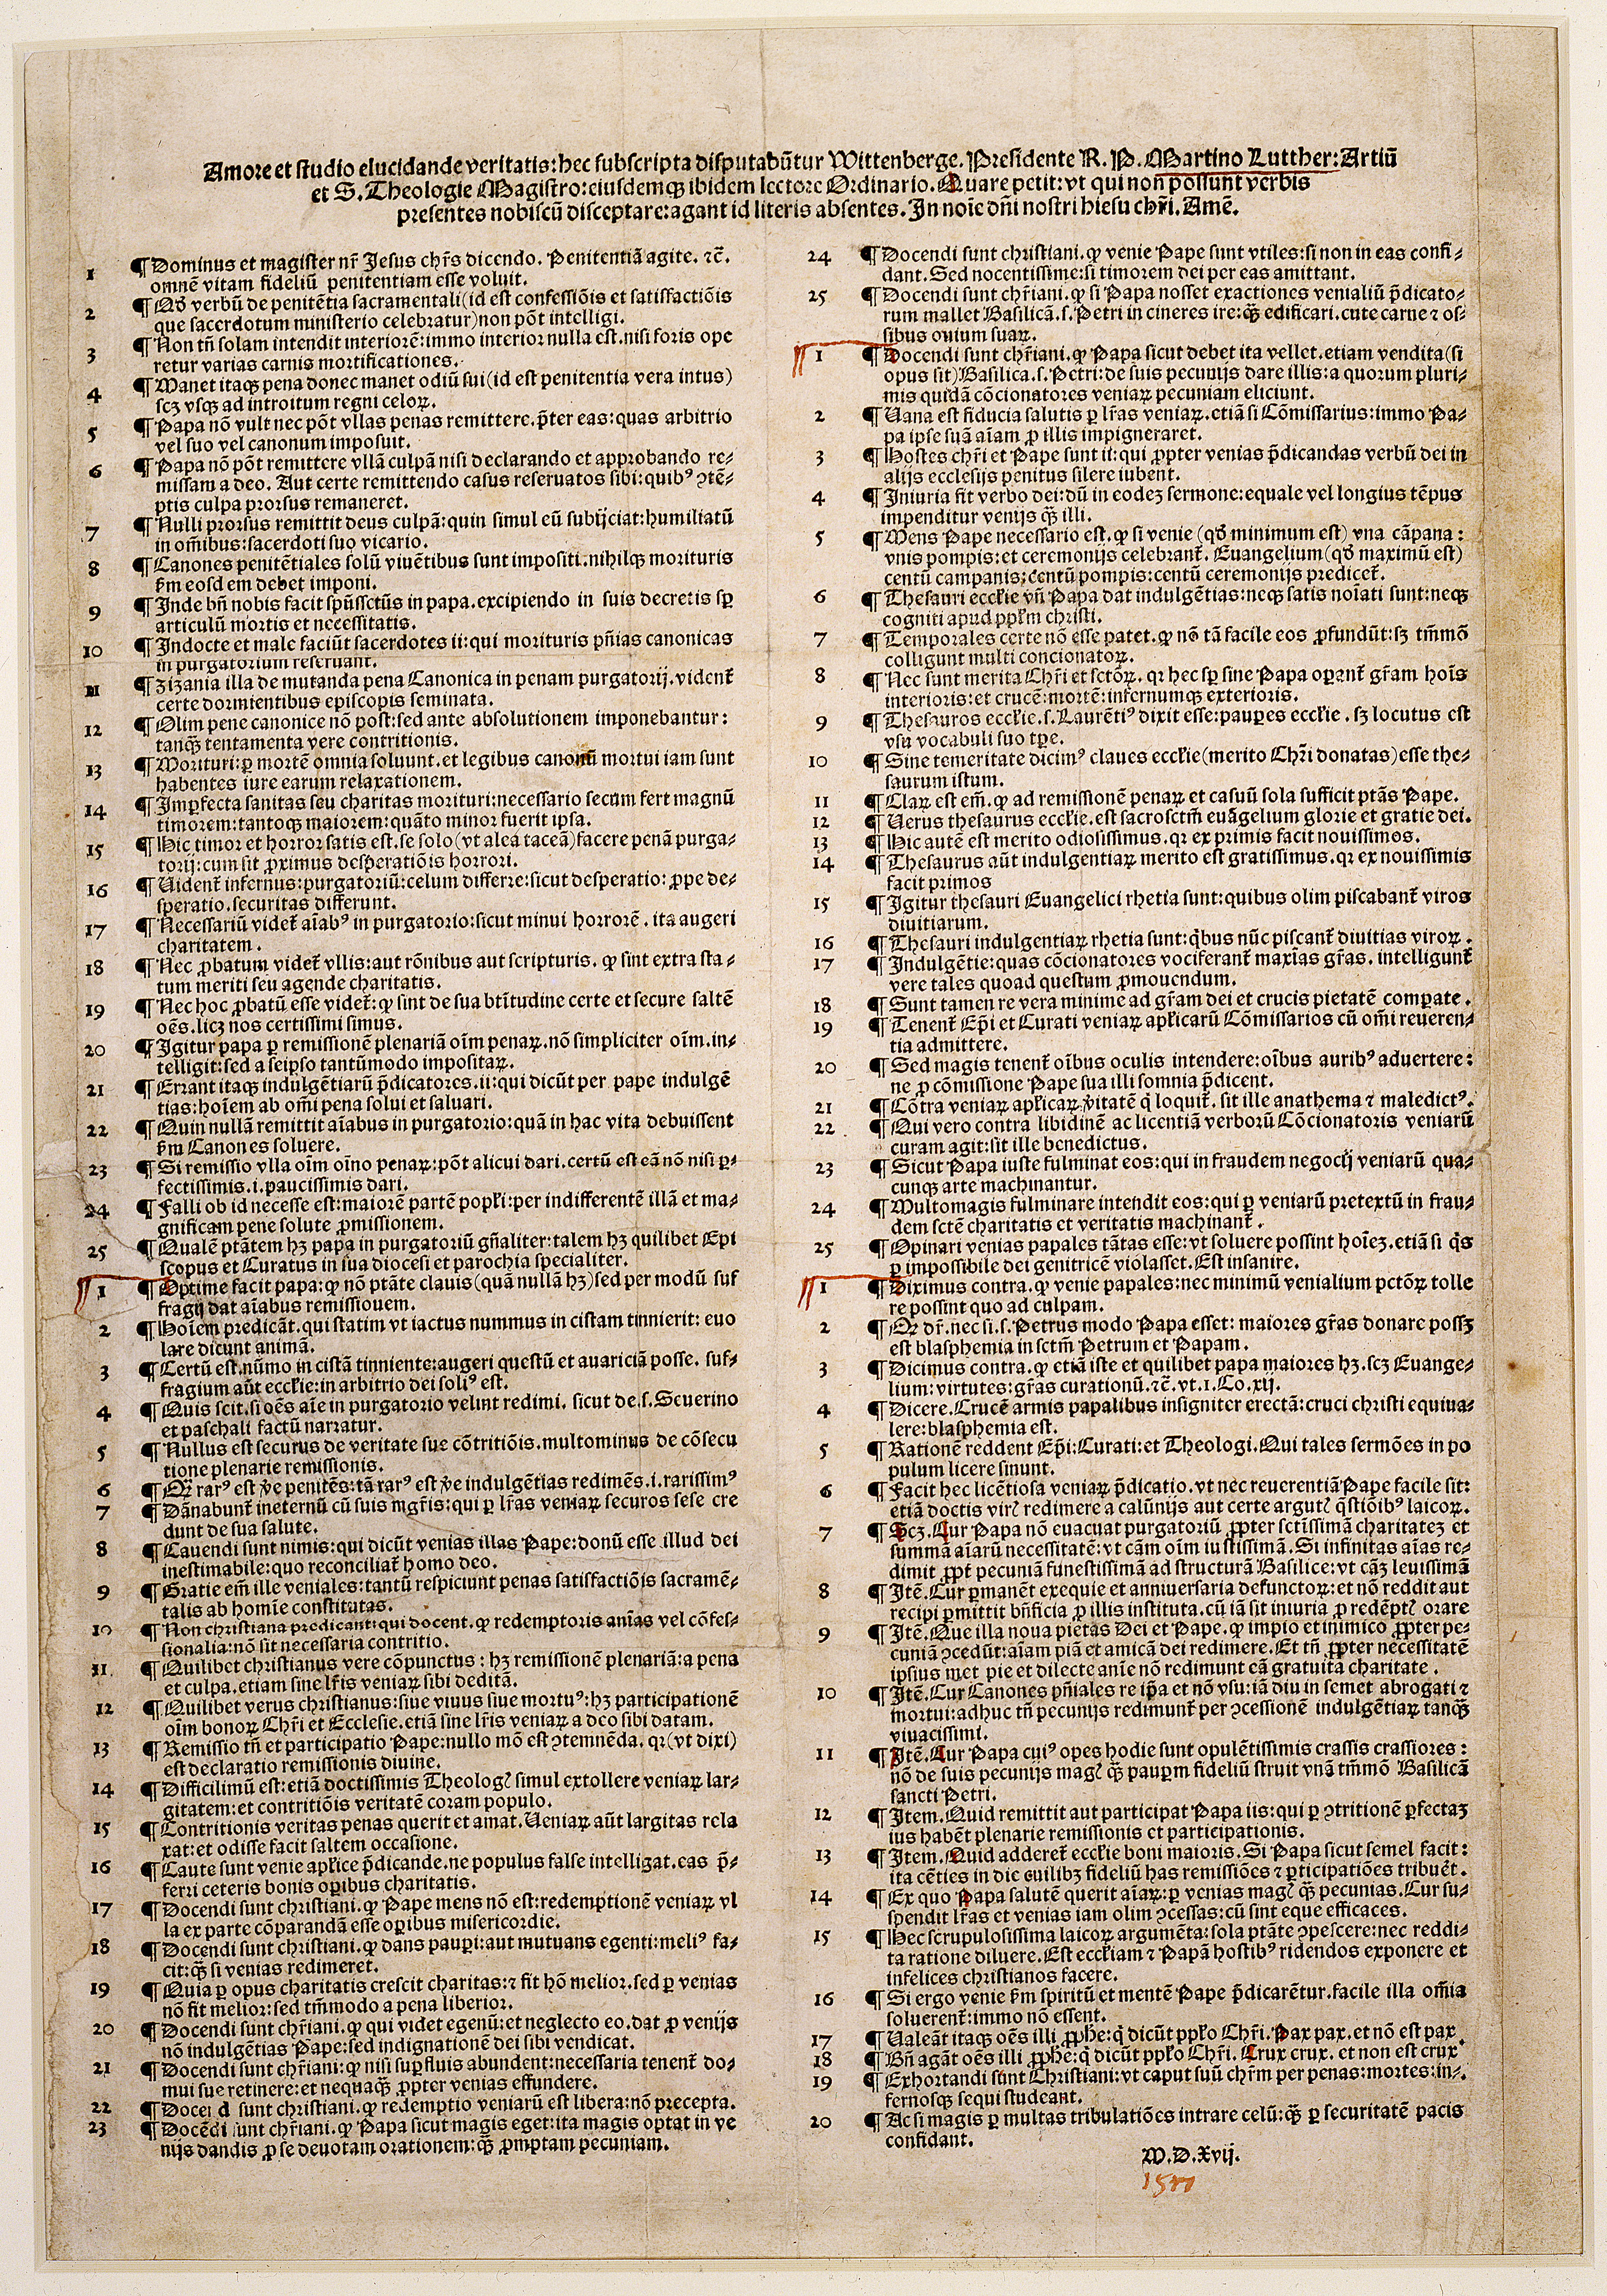 Amore et studio elucidande veritatis: hec subscripta disputabũtur Wittenberge. Presidente R. P. Martino Lutther: Artiũ
et S. Theologie Magistro: eiusdemqꝫ ibidem lectore Ordinario. Quare petit: vt qui non possunt verbis
presentes nobiscũ disceptare: agant id literis absentes. In noĩe dñi nostri hiesu chr̃i. Amẽ.
1 ¶ Dominus et magister nr̃ Jesus chr̃s dicendo. Penitentiã agite. ⁊c̃.
omnẽ vitam fideliũ penitentiam esse voluit.
2 ¶ Qđ verbũ de penitẽtia sacramentali (id est confessiõis et satisfactiõis
que sacerdotum ministerio celebratur) non põt intelligi.
3 ¶ Non tñ solam intendit interiorẽ: immo interior nulla est. nisi foris ope
retur varias carnis mortificationes.
4 ¶ Manet itaqꝫ pena donec manet odiũ sui (id est penitentia vera intus)
scꝫ vsqꝫ ad introitum regni celoꝝ.
5 ¶ Papa nõ vult nec põt vllas penas remittere. p̃ter eas: quas arbitrio
vel suo vel canonum imposuit.
6 ¶ Papa nõ põt remittere vllã culpã nisi declarando et approbando re⸗
missam a deo. Aut certe remittendo casus reseruatos sibi: quibꝰ ꝯtẽ⸗
ptis culpa prorsus remaneret.
7 ¶ Nulli prorsus remittit deus culpã: quin simul eũ subijciat: humiliatũ
in om̃ibus: sacerdoti suo vicario.
8 ¶ Canones penitẽtiales solũ viuẽtibus sunt impositi. nihilqꝫ morituris
ẜm eosdem debet imponi.
9 ¶ Inde bñ nobis facit spũssctũs in papa. excipiendo in suis decretis sꝑ
articulũ mortis et necessitatis.
10 ¶ Indocte et male faciũt sacerdotes ii: qui morituris pñias canonicas
in purgatorium reseruant.
11 ¶ Zizania illa de mutanda pena Canonica in penam purgatorij. vident̃
certe dormientibus episcopis seminata.
12 ¶ Olim pene canonice nõ post: sed ante absolutionem imponebantur:
tanqꝫ̃ tentamenta vere contritionis.
13 ¶ Morituri: ꝑ mortẽ omnia soluunt. et legibus canonũ mortui iam sunt
habentes iure earum relaxationem.
14 ¶ Imꝑfecta sanitas seu charitas morituri: necessario secum fert magnũ
timorem: tantoqꝫ maiorem: quãto minor fuerit ipsa.
15 ¶ Hic timor et horror satis est. se solo (vt alea taceã) facere penã purga⸗
torij: cum sit ꝓximus desperatiõis horrori.
16 ¶ Uident̃ infernus: purgatoriũ: celum differre: sicut desperatio: ꝓpe de⸗
speratio. securitas differunt.
17 ¶ Necessariũ videt̃ aĩabꝰ in purgatorio: sicut minui horrorẽ. ita augeri
charitatem.
18 ¶ Nec ꝓbatum videt̃ vllis: aut rõnibus aut scripturis. ꝙ sint extra sta⸗
tum meriti seu agende charitatis.
19 ¶ Nec hoc ꝓbatũ esse videt̃: ꝙ sint de sua btĩtudine certe et secure saltẽ
oẽs. licꝫ nos certissimi simus.
20 ¶ Igitur papa ꝑ remissionẽ plenariã oĩm penaꝝ. nõ simpliciter oĩm. in⸗
telligit: sed a seipso tantũmodo impositaꝝ.
21 ¶ Errant itaqꝫ indulgẽtiarũ p̃dicatores. ii: qui dicũt per pape indulgẽ
tias: hoĩem ab om̃i pena solui et saluari.
22 ¶ Quin nullã remittit aĩabus in purgatorio: quã in hac vita debuissent
ẜm Canones soluere.
23 ¶ Si remissio vlla oĩm oĩno penaꝝ: põt alicui dari. certũ est eã nõ nisi ꝑ⸗
fectissimis. i. paucissimis dari.
24 ¶ Falli ob id necesse est: maiorẽ partẽ popl̃i: per indifferentẽ illã et ma⸗
gnificam pene solute ꝓmissionem.
25 ¶ Qualẽ ptãtem hꝫ papa in purgatoriũ gñaliter: talem hꝫ quilibet Epi
scopus et Curatus in sua diocesi et parochia specialiter.
1 ¶ Optime facit papa: ꝙ nõ ptãte clauis (quã nullã hꝫ) sed per modũ suf
fragij dat aĩabus remissiouem.
2 ¶ Hoĩem predicãt. qui statim vt iactus nummus in cistam tinnierit: euo
lare dicunt animã.
3 ¶ Certũ est. nũmo in cistã tinniente: augeri questũ et auariciã posse. suf⸗
fragium aũt eccl̃ie: in arbitrio dei soliꝰ est.
4 ¶ Quis scit. si oẽs aĩe in purgatorio velint redimi. sicut de. s. Seuerino
et paschali factũ narratur.
5 ¶ Nullus est securus de veritate sue cõtritiõis. multominus de cõsecu
tione plenarie remissionis.
6 ¶ Qꝫ̃ rarꝰ est ṽe penitẽs: tã rarꝰ est ṽe indulgẽtias redimẽs. i. rarissimꝰ
7 ¶ Dãnabunt̃ ineternũ cũ suis mgr̃is: qui ꝑ lr̃as veniaꝝ securos sese cre
dunt de sua salute.
8 ¶ Cauendi sunt nimis: qui dicũt venias illas Pape: donũ esse illud dei
inestimabile: quo reconciliat̃ homo deo.
9 ¶ Gratie em̃ ille veniales: tantũ respiciunt penas satisfactiõis sacramẽ⸗
talis ab homĩe constitutas.
10 ¶ Non christiana predicant: qui docent. ꝙ redemptoris anĩas vel cõfes⸗
sionalia: nõ sit necessaria contritio.
11 ¶ Quilibet christianus vere cõpunctus: hꝫ remissionẽ plenariã: a pena
et culpa. etiam sine lr̃is veniaꝝ sibi deditã.
12 ¶ Quilibet verus christianus: siue viuus siue mortuꝰ: hꝫ participationẽ
oĩm bonoꝝ Chr̃i et Ecclesie. etiã sine lr̃is veniaꝝ a deo sibi datam.
13 ¶ Remissio tñ et participatio Pape: nullo mõ est ꝯtemnẽda. qꝛ (vt dixi)
est declaratio remissionis diuine.
14 ¶ Difficilimũ est: etiã doctissimis Theologꝭ simul extollere veniaꝝ lar⸗
gitatem: et contritiõis veritatẽ coram populo.
15 ¶ Contritionis veritas penas querit et amat. Ueniaꝝ aũt largitas rela
xat: et odisse facit saltem occasione.
16 ¶ Caute sunt venie apl̃ice p̃dicande. ne populus false intelligat. eas p̃⸗
ferri ceteris bonis oꝑibus charitatis.
17 ¶ Docendi sunt christiani. ꝙ Pape mens nõ est: redemptionẽ veniaꝝ vl
la ex parte cõparandã esse oꝑibus misericordie.
18 ¶ Docendi sunt christiani. ꝙ dans pauꝑi: aut mutuans egenti: meliꝰ fa⸗
cit: qꝫ̃ si venias redimeret.
19 ¶ Quia ꝑ opus charitatis crescit charitas: ⁊ fit hõ melior. sed ꝑ venias
nõ fit melior: sed tm̃modo a pena liberior.
20 ¶ Docendi sunt chr̃iani. ꝙ qui videt egenũ: et neglecto eo. dat ꝓ venijs
nõ indulgẽtias Pape: sed indignationẽ dei sibi vendicat.
21 ¶ Docendi sunt chr̃iani: ꝙ nisi suꝑfluis abundent: necessaria tenent̃ do⸗
mui sue retinere: et nequaqꝫ̃ ꝓpter venias effundere.
22 ¶ Docei d sunt christiani. ꝙ redemptio veniarũ est libera: nõ precepta.
23 ¶ Docẽdi sunt chr̃iani. ꝙ Papa sicut magis eget: ita magis optat in ve
nijs dandis ꝓ se deuotam orationem: qꝫ̃ ꝓmptam pecuniam.
24 ¶ Docendi sunt christiani. ꝙ venie Pape sunt vtiles: si non in eas confi⸗
dant. Sed nocentissime: si timorem dei per eas amittant.
25 ¶ Docendi sunt chr̃iani. ꝙ si Papa nosset exactiones venialiũ p̃dicato⸗
rum mallet Basilicã. s. Petri in cineres ire: qꝫ̃ edificari. cute carne ⁊ os⸗
sibus ouium suaꝝ.
1 ¶ Docendi sunt chr̃iani. ꝙ Papa sicut debet ita vellet. etiam vendita (si
opus sit) Basilica. s. Petri: de suis pecunijs dare illis: a quorum pluri⸗
mis quidã cõcionatores veniaꝝ pecuniam eliciunt.
2 ¶ Uana est fiducia salutis ꝑ lr̃as veniaꝝ. etiã si Cõmissarius: immo Pa⸗
pa ipse suã aĩam ꝓ illis impigneraret.
3 ¶ Hostes chr̃i et Pape sunt ii: qui ꝓpter venias p̃dicandas verbũ dei in
alijs ecclesijs penitus silere iubent.
4 ¶ Iniuria fit verbo dei: dũ in eodeꝫ sermone: equale vel longius tẽpus
impenditur venijs qꝫ̃ illi.
5 ¶ Mens Pape necessario est. ꝙ si venie (qđ minimum est) vna cãpana:
vnis pompis: et ceremonijs celebrant̃. Euangelium (qđ maximũ est)
centũ campanis: centũ pompis: centũ ceremonijs predicet̃.
6 ¶ Thesauri eccl̃ie vñ Papa dat indulgẽtias: neqꝫ satis noĩati sunt: neqꝫ
cogniti apud ppl̃m christi.
7 ¶ Temporales certe nõ esse patet. ꝙ nõ tã facile eos ꝓfundũt: sꝫ tm̃mõ
colligunt multi concionatoꝝ.
8 ¶ Nec sunt merita Chr̃i et sctõꝝ. qꝛ hec sꝑ sine Papa oꝑant̃ gr̃am hoĩs
interioris: et crucẽ: mortẽ: infernumqꝫ exterioris.
9 ¶ Thesauros eccl̃ie. s. Laurẽtiꝰ dixit esse: pauꝑes eccl̃ie. sꝫ locutus est
vsu vocabuli suo tꝑe.
10 ¶ Sine temeritate dicimꝰ claues eccl̃ie (merito Chr̃i donatas) esse the⸗
saurum istum.
11 ¶ Claꝝ est em̃. ꝙ ad remissionẽ penaꝝ et casuũ sola sufficit ptãs Pape.
12 ¶ Uerus thesaurus eccl̃ie. est sacrosctm̃ euãgelium glorie et gratie dei.
13 ¶ Hic autẽ est merito odiosissimus. qꝛ ex primis facit nouissimos.
14 ¶ Thesaurus aũt indulgentiaꝝ merito est gratissimus. qꝛ ex nouissimis
facit primos
15 ¶ Igitur thesauri Euangelici rhetia sunt: quibus olim piscabant̃ viros
diuitiarum.
16 ¶ Thesauri indulgentiaꝝ rhetia sunt: q̃bus nũc piscant̃ diuitias viroꝝ.
17 ¶ Indulgẽtie: quas cõcionatores vociferant̃ maxĩas gr̃as. intelligunt̃
vere tales quoad questum ꝓmouendum.
18 ¶ Sunt tamen re vera minime ad gr̃am dei et crucis pietatẽ compate.
19 ¶ Tenent̃ Epĩ et Curati veniaꝝ apl̃icarũ Cõmissarios cũ om̃i reueren⸗
tia admittere.
20 ¶ Sed magis tenent̃ oĩbus oculis intendere: oĩbus auribꝰ aduertere:
ne ꝓ cõmissione Pape sua illi somnia p̃dicent.
21 ¶ Cõtra veniaꝝ apl̃icaꝝ ṽitatẽ q̃ loquit̃. sit ille anathema ⁊ maledictꝰ.
22 ¶ Qui vero contra libidinẽ ac licentiã verborũ Cõcionatoris veniarũ
curam agit: sit ille benedictus.
23 ¶ Sicut Papa iuste fulminat eos: qui in fraudem negocij veniarũ qua⸗
cunqꝫ arte machinantur.
24 ¶ Multomagis fulminare intendit eos: qui ꝑ veniarũ pretextũ in frau⸗
dem sctẽ charitatis et veritatis machinant̃.
25 ¶ Opinari venias papales tãtas esse: vt soluere possint hoĩeꝫ. etiã si q̃s
ꝑ impossibile dei genitricẽ violasset. Est insanire.
1 ¶ Diximus contra. ꝙ venie papales: nec minimũ venialium pctõꝝ tolle
re possint quo ad culpam.
2 ¶ Qꝙ dr̃. nec si. s. Petrus modo Papa esset: maiores gr̃as donare possꝫ
est blasphemia in sctm̃ Petrum et Papam.
3 ¶ Dicimus contra. ꝙ etiã iste et quilibet papa maiores hꝫ. scꝫ Euange⸗
lium: virtutes: gr̃as curationũ. ⁊c̃. vt. 1. Co. xij.
4 ¶ Dicere. Crucẽ armis papalibus insigniter erectã: cruci christi equiua⸗
lere: blasphemia est.
5 ¶ Rationẽ reddent Epĩ: Curati: et Theologi. Qui tales sermões in po
pulum licere sinunt.
6 ¶ Facit hec licẽtiosa veniaꝝ p̃dicatio. vt nec reuerentiã Pape facile sit:
etiã doctis virꝭ redimere a calũnijs aut certe argutꝭ q̃stiõibꝰ laicoꝝ.
7 ¶ Scꝫ. Cur Papa nõ euacuat purgatoriũ ꝓpter sctĩssimã charitateꝫ et
summã aĩarũ necessitatẽ: vt cãm oĩm iustissimã. Si infinitas aĩas re⸗
dimit ꝓpt̃ pecuniã funestissimã ad structurã Basilice: vt cãꝫ leuissimã
8 ¶ Itẽ. Cur ꝑmanẽt exequie et anniuersaria defunctoꝝ: et nõ reddit aut
recipi ꝑmittit bñficia ꝓ illis instituta. cũ iã sit iniuria ꝓ redẽptꝭ orare
9 ¶ Itẽ. Que illa noua pietas Dei et Pape. ꝙ impio et inimico ꝓpter pe⸗
cuniã ꝯcedũt: aĩam piã et amicã dei redimere. Et tñ ꝓpter necessitatẽ
ipsius met pie et dilecte anĩe nõ redimunt eã gratuita charitate.
10 ¶ Itẽ. Cur Canones pñiales re ip̃a et nõ vsu: iã diu in semet abrogati ⁊
mortui: adhuc tñ pecunijs redimunt̃ per ꝯcessionẽ indulgẽtiaꝝ tanqꝫ̃
viuacissimi.
11 ¶ Itẽ. Cur Papa cuiꝰ opes hodie sunt opulẽtissimis crassis crassiores:
nõ de suis pecunijs magꝭ qꝫ̃ pauꝑm fideliũ struit vnã tm̃mõ Basilicã
sancti Petri.
12 ¶ Item. Quid remittit aut participat Papa iis: qui ꝑ ꝯtritionẽ ꝑfectaꝫ
ius habẽt plenarie remissionis et participationis.
13 ¶ Item. Quid adderet̃ eccl̃ie boni maioris. Si Papa sicut semel facit:
ita cẽties in die cuilibꝫ fideliũ has remissiões ⁊ ꝑticipatiões tribuẽt.
14 ¶ Ex quo Papa salutẽ querit aĩaꝝ: ꝑ venias magꝭ qꝫ̃ pecunias. Cur su⸗
spendit lr̃as et venias iam olim ꝯcessas: cũ sint eque efficaces.
15 ¶ Hec scrupulosissima laicoꝝ argumẽta: sola ptãte ꝯpescere: nec reddi⸗
ta ratione diluere. Est eccl̃iam ⁊ Papã hostibꝰ ridendos exponere et
infelices christianos facere.
16 ¶ Si ergo venie ẜm spiritũ et mentẽ Pape p̃dicarẽtur. facile illa om̃ia
soluerent̃: immo nõ essent.
17 ¶ Ualeãt itaqꝫ oẽs illi ꝓphẽ: q̃ dicũt ppl̃o Chr̃i. Pax pax. et nõ est pax.
18 ¶ Bñ agãt oẽs illi ꝓphẽ: q̃ dicũt ppl̃o Chr̃i. Crux crux. et non est crux
19 ¶ Exhortandi sunt Christiani: vt caput suũ chr̃m per penas: mortes: in⸗
fernosqꝫ sequi studeant.
20 ¶ Ac si magis ꝑ multas tribulatiões intrare celũ: qꝫ̃ ꝑ securitatẽ pacis
confidant.
M.D.Xvij.
1517